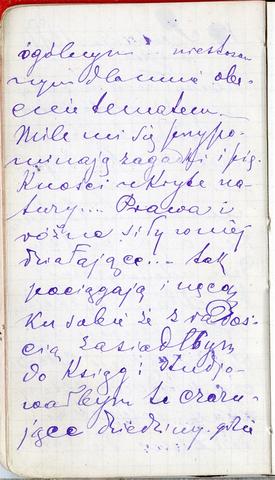 ogólnym – niestosow
nym dla mnie obe-
cnie tematem.
Mile mi się przypo-
minają zagadki i pię-
kności ukryte na-
tury... Prawa i
różne siły w niej
działające... tak
pociągają i nęcą
ku sobie że z rados-
cią zasiadłbym
do Ksiąg i studjo-
wałbym te czaru-
jące dziedziny. gdzie